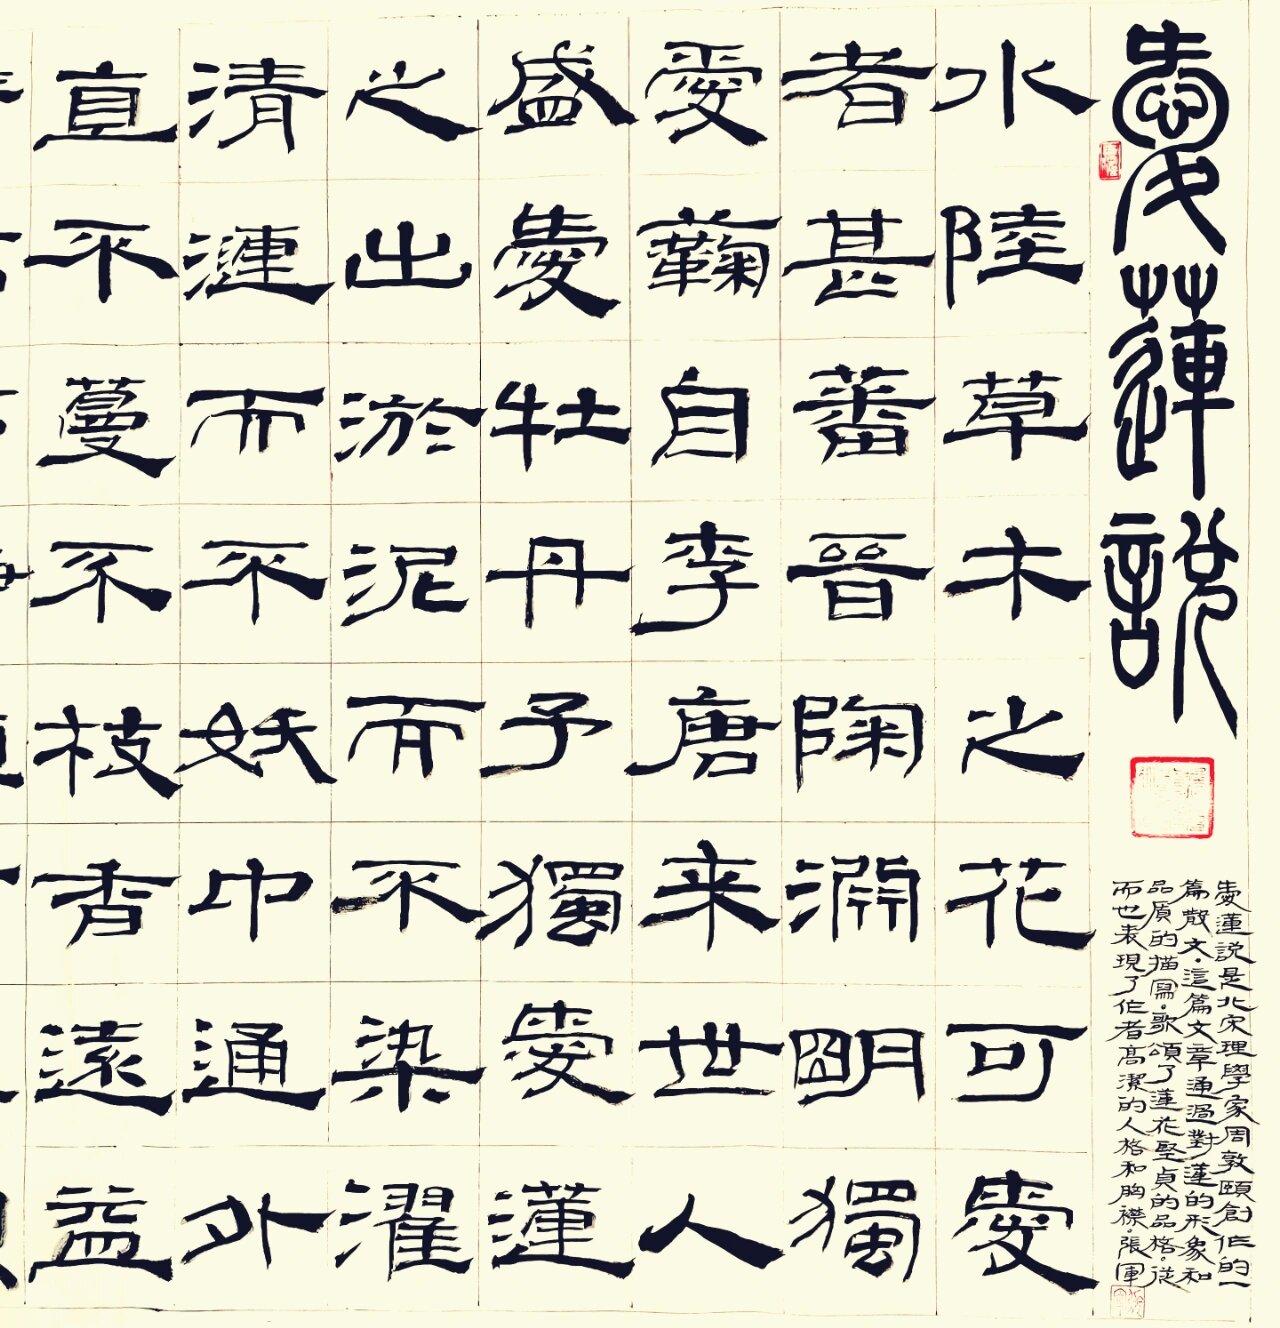 愛蓮說
愛蓮説是北宋理學家周敦頤創作的一
篇散文。這篇文章通過對蓮的形象和
品質的描寫。歌頌了蓮花堅貞的品格。從
而也表現了作者高潔的人格和胸襟。張軍
水陸草木之花可愛
者甚蕃晉陶淵明獨
愛蘜自李唐来世人
盛愛牡丹予獨愛蓮
之出淤泥而不染濯
清漣而不妖中通外
直不蔓不枝香遠益